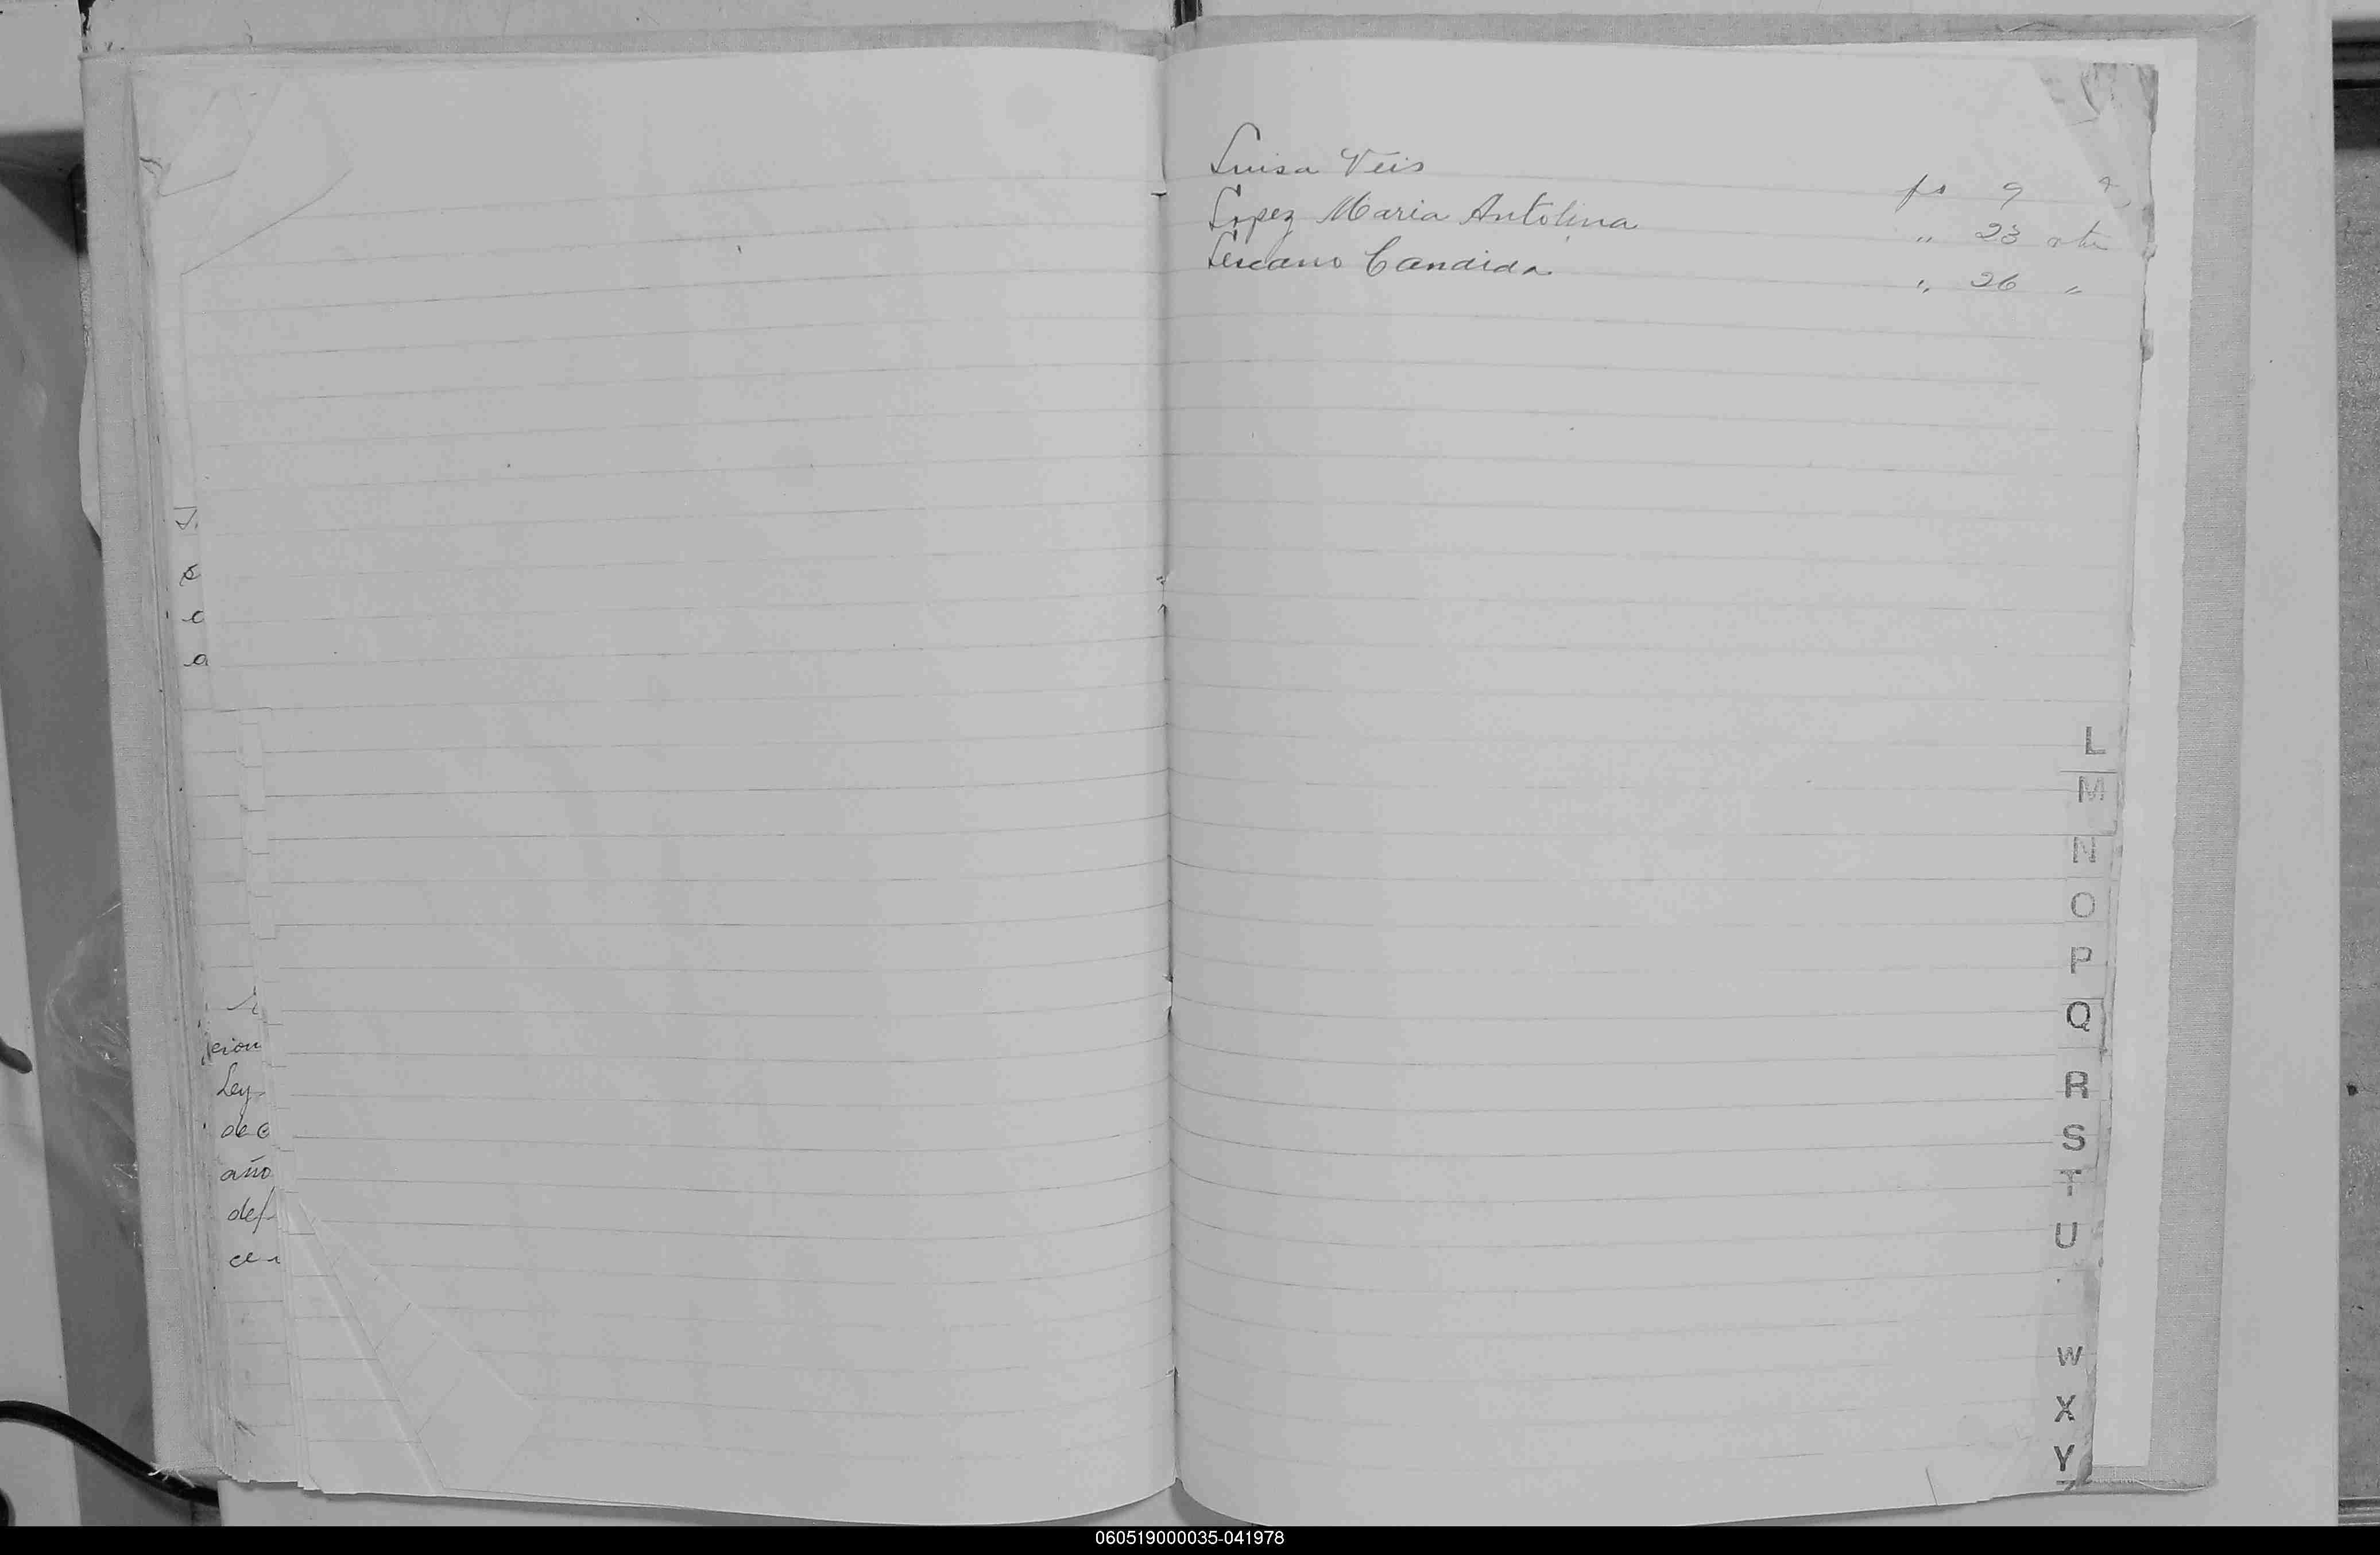 Luisa Veis fs 9
Lopez Maria Antolina " 23 vta
Lescano Candida " 26 "
L
M
N
O
P
Q
R
S
T
U
W
X
Y
cion
Ley
de c
año
def
060519000035-041978